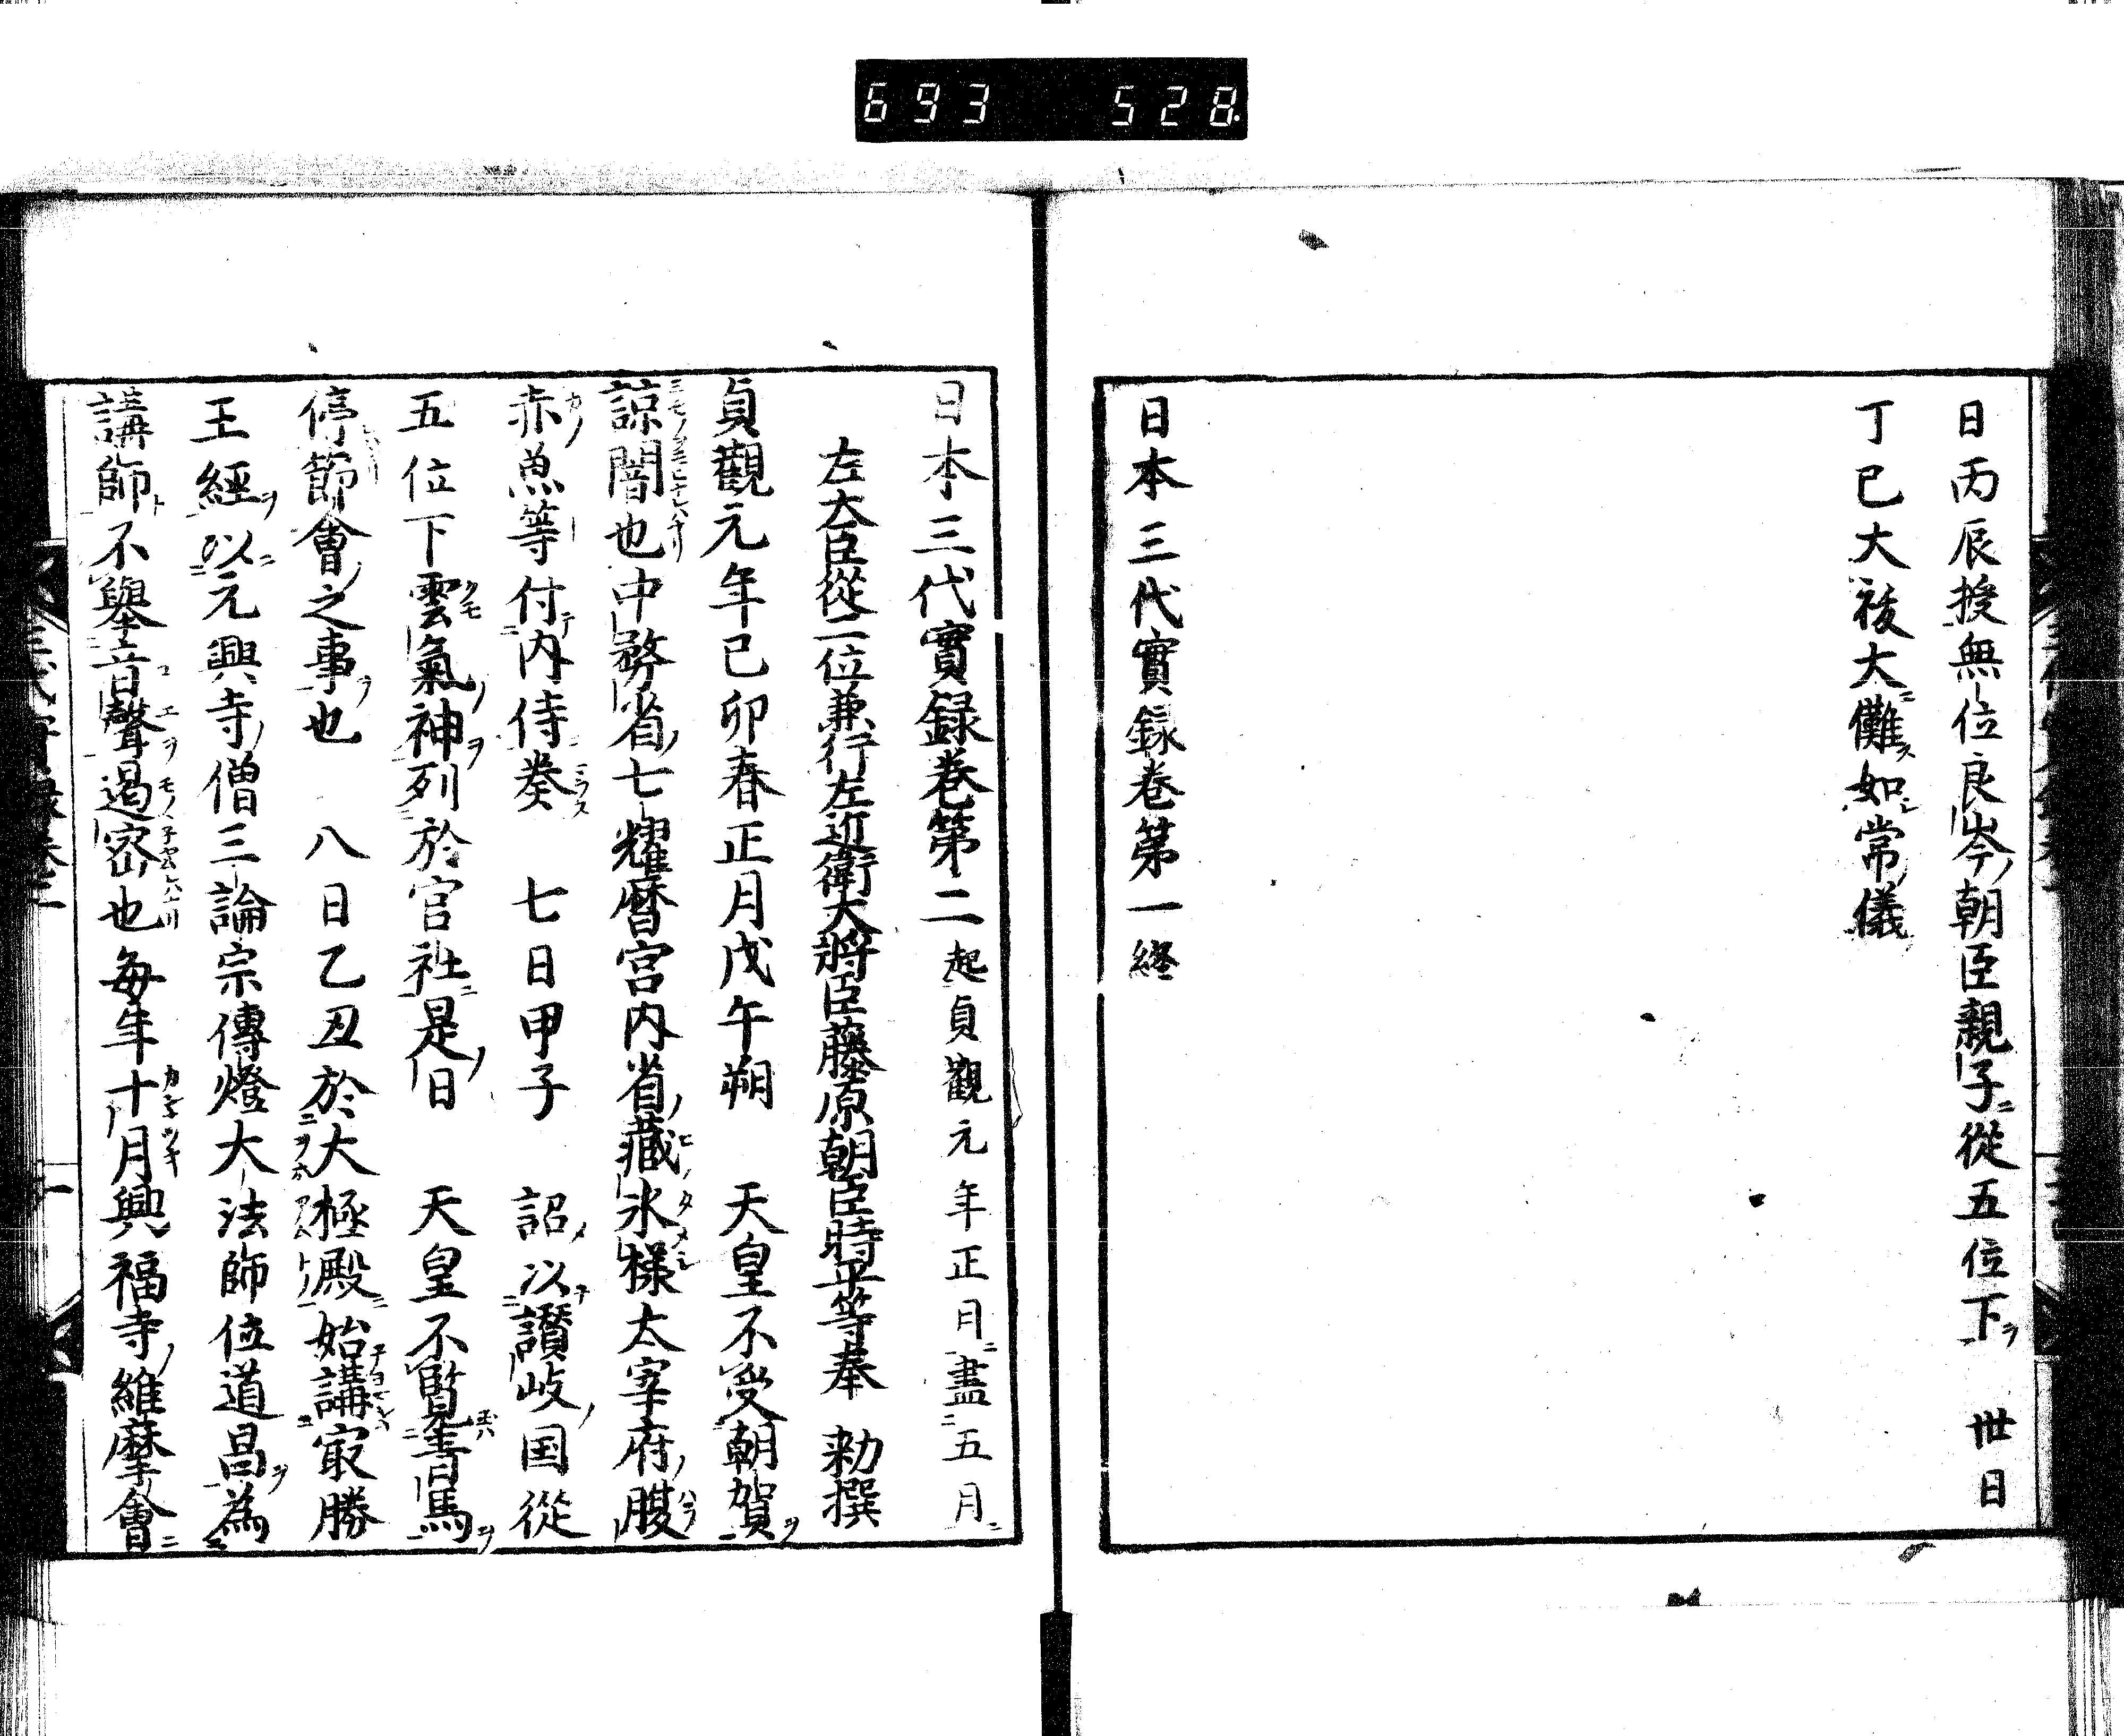 693 528
日丙辰授無位良岑朝臣親子從五位下 丗日
丁巳大祓大儺如常儀
日本三代實録卷第一終
日本三代實録卷第二起貞觀元年正月盡五月
左大臣從二位兼行左近衛大將臣藤原朝臣時平等奉 勅撰
貞觀元年己卯春正月戊午朔 天皇不受朝賀
諒闇也中務省七耀暦宮内省藏氷様太宰府腹
赤魚等付内侍奏 七日甲子 詔以讃岐国從
五位下雲氣神列於官社是日 天皇不覧青馬
停節會之事也 八日乙丑於大極殿始講冣勝
王經以元興寺僧三論宗傳燈大法師位道昌為
講師不舉音聲遏密也毎年十月興福寺維摩會